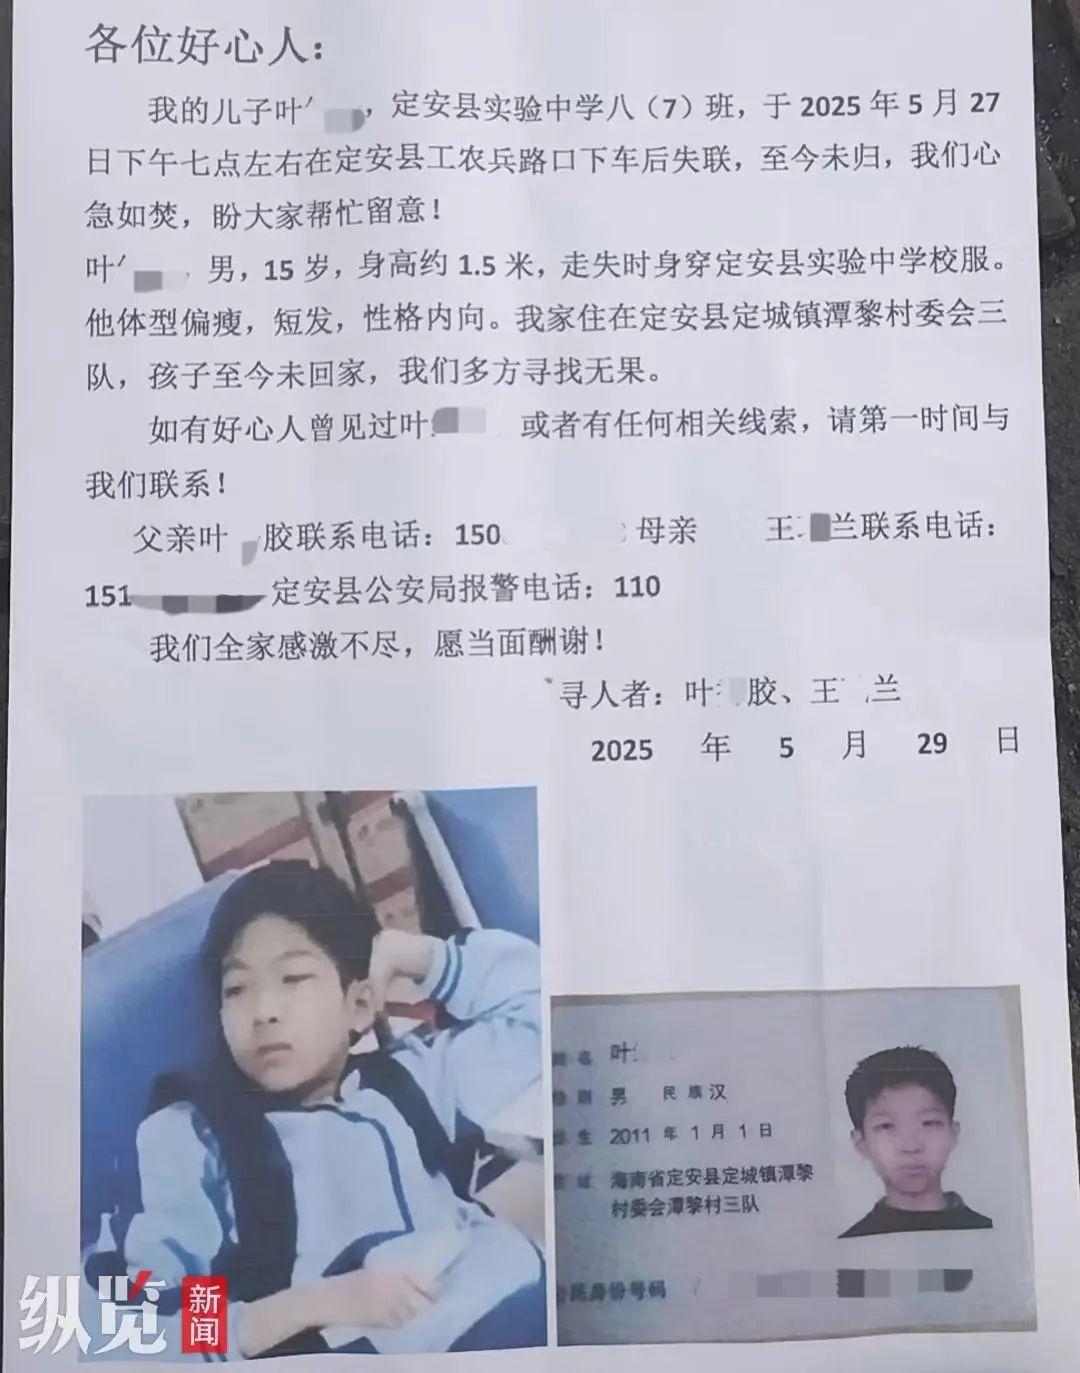 各位好心人：
我的儿子叶，定安县实验中学八（7）班，于 2025 年 5 月 27
日下午七点左右在定安县工农兵路口下车后失联，至今未归，我们心
急如焚，盼大家帮忙留意！
叶 男，15 岁，身高约 1.5 米，走失时身穿定安县实验中学校服。
他体型偏瘦，短发，性格内向。我家住在定安县定城镇潭黎村委会三
队，孩子至今未回家，我们多方寻找无果。
如有好心人曾见过叶 或者有任何相关线索，请第一时间与
我们联系！
父亲叶 胶联系电话：150 母亲 王 兰联系电话：
151 定安县公安局报警电话：110
我们全家感激不尽，愿当面酬谢！
寻人者：叶 胶、王 兰
2025 年 5 月 29 日
姓名 叶
性别 男 民族 汉
出生 2011 年 1 月 1 日
海南省定安县定城镇潭黎
村委会潭黎村三队
公民身份号码
纵览新闻